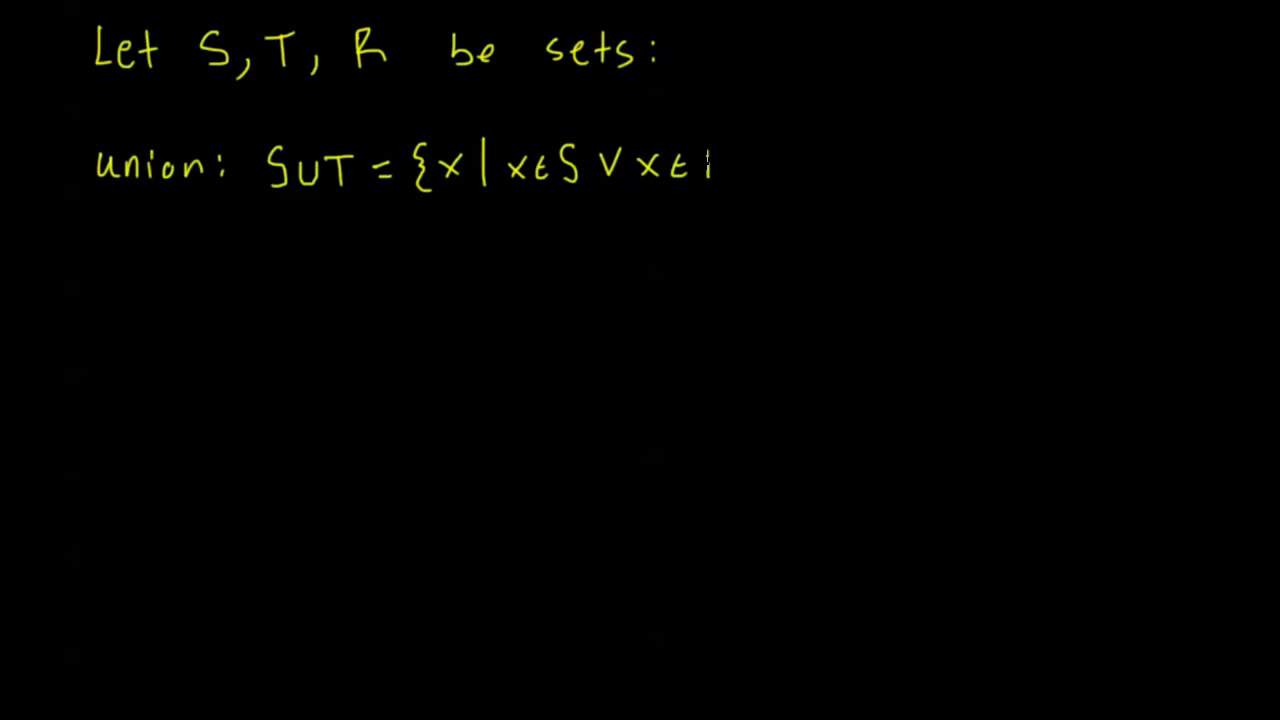 Let S, T, R be sets:
union: S∪T = {x | x∈S ∨ x∈